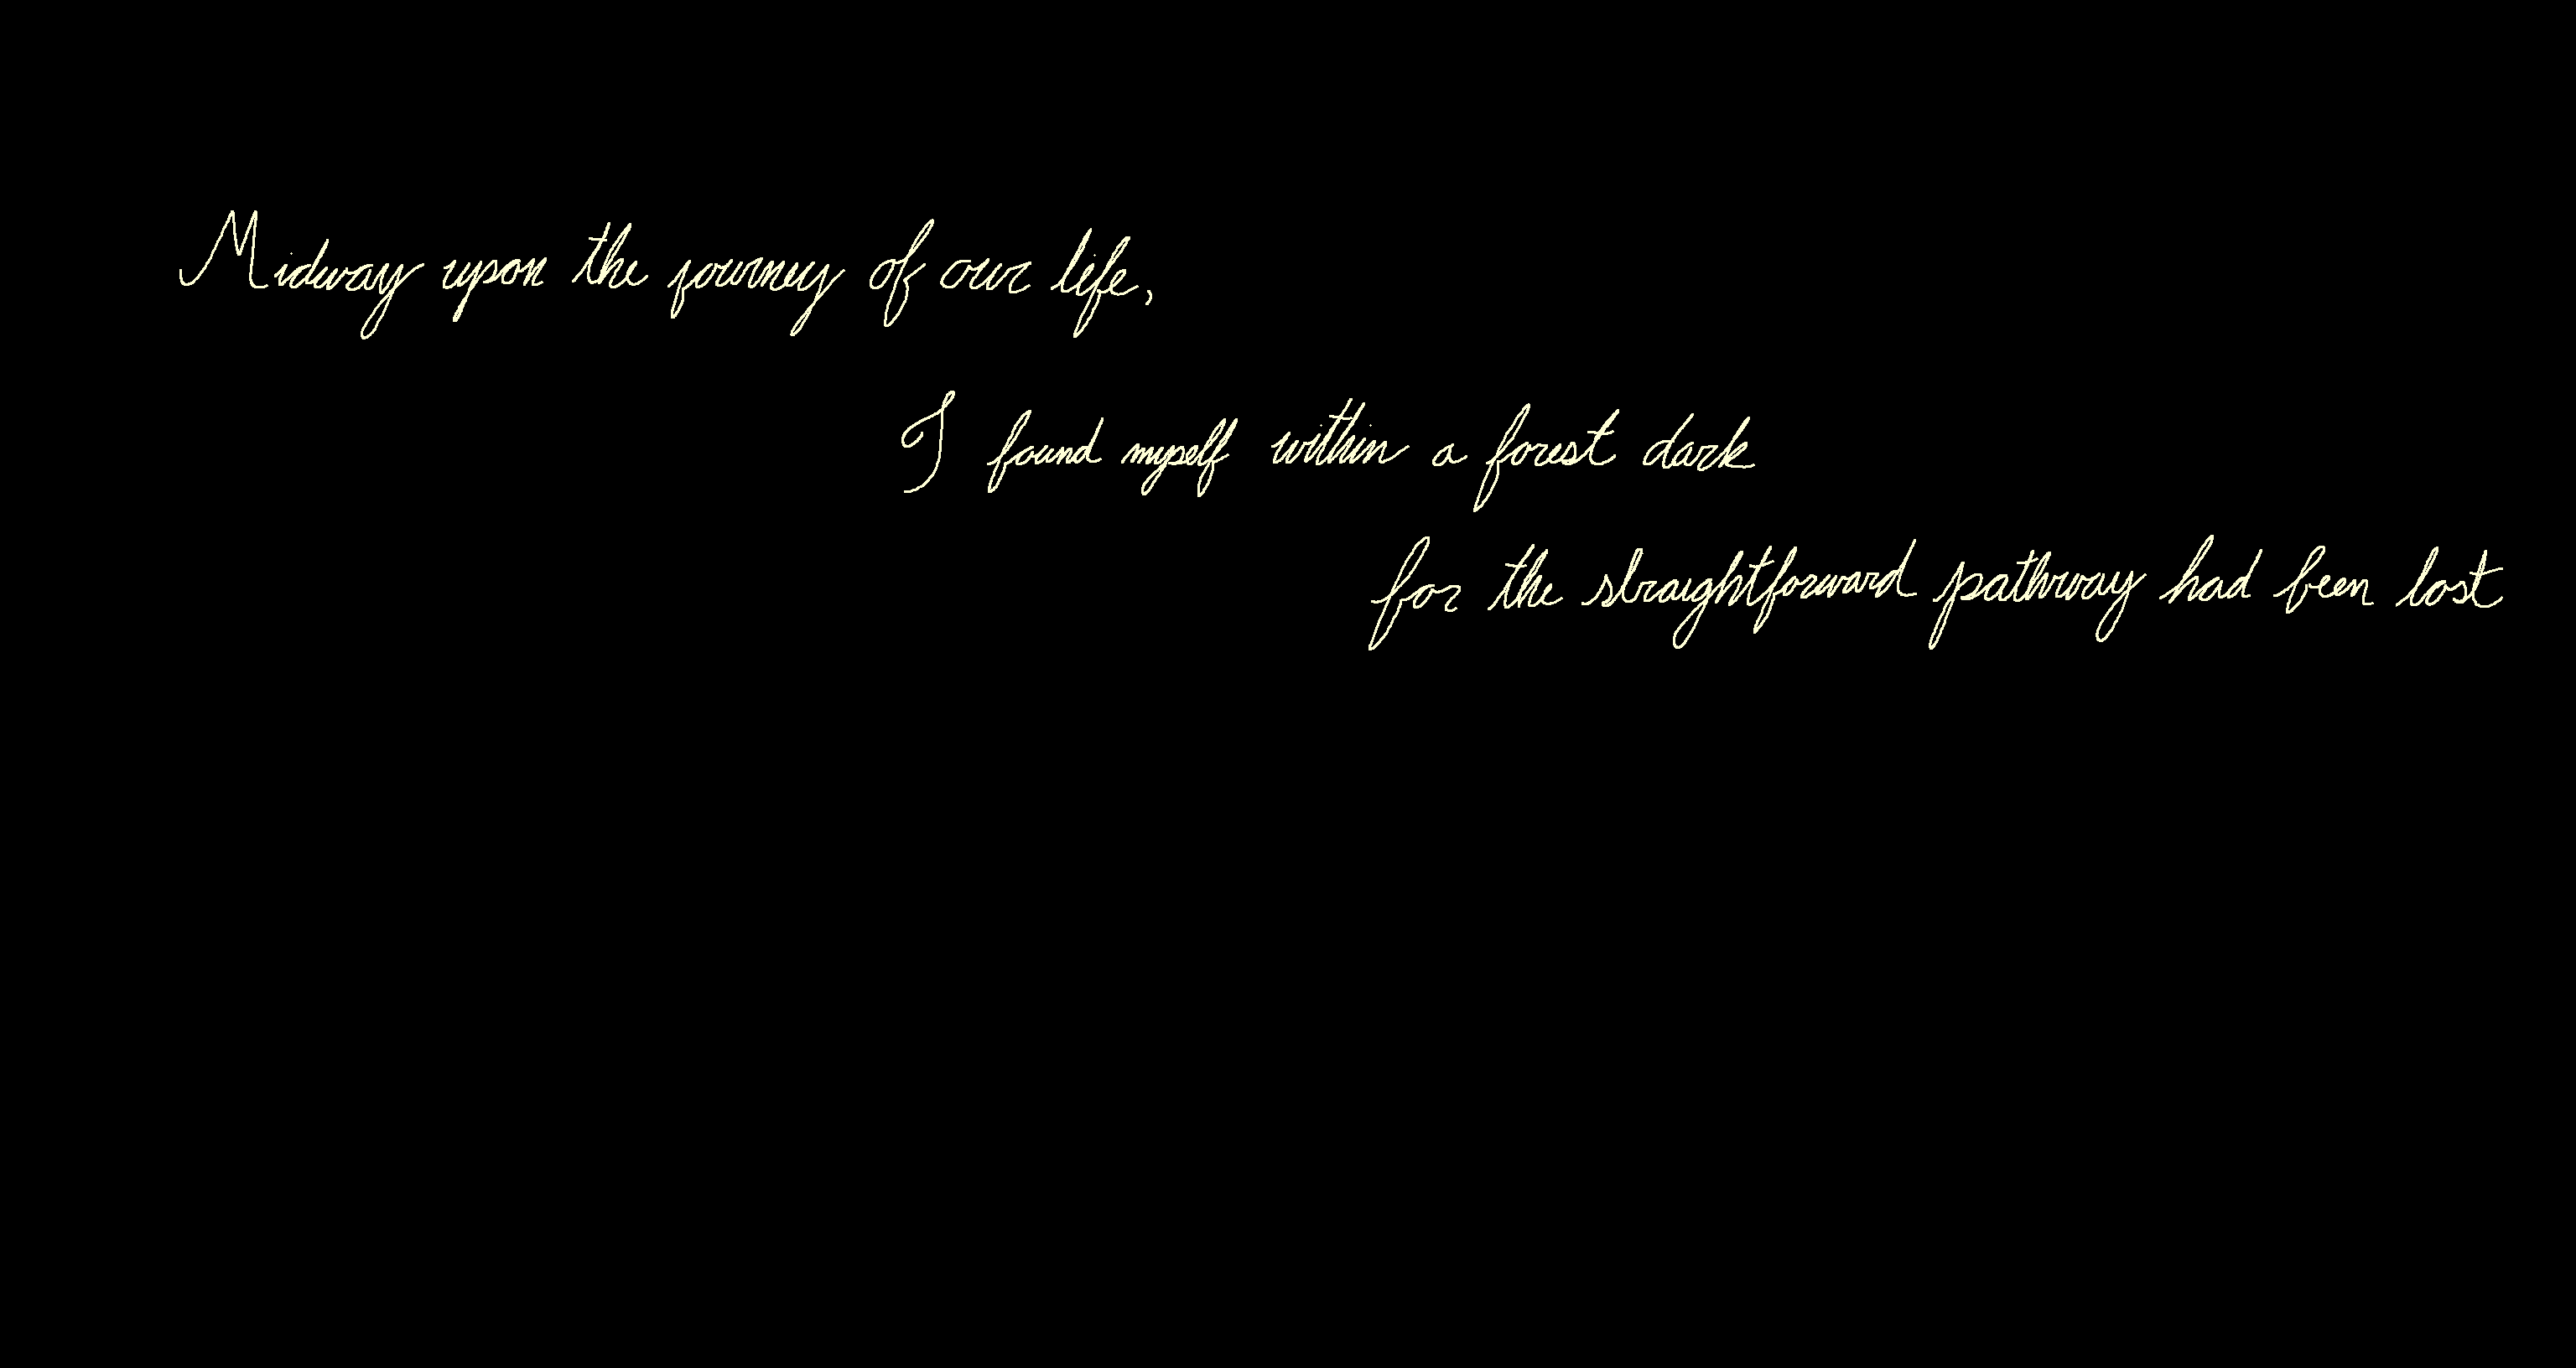 Midway upon the journey of our life,
I found myself within a forest dark
for the straightforward pathway had been lost